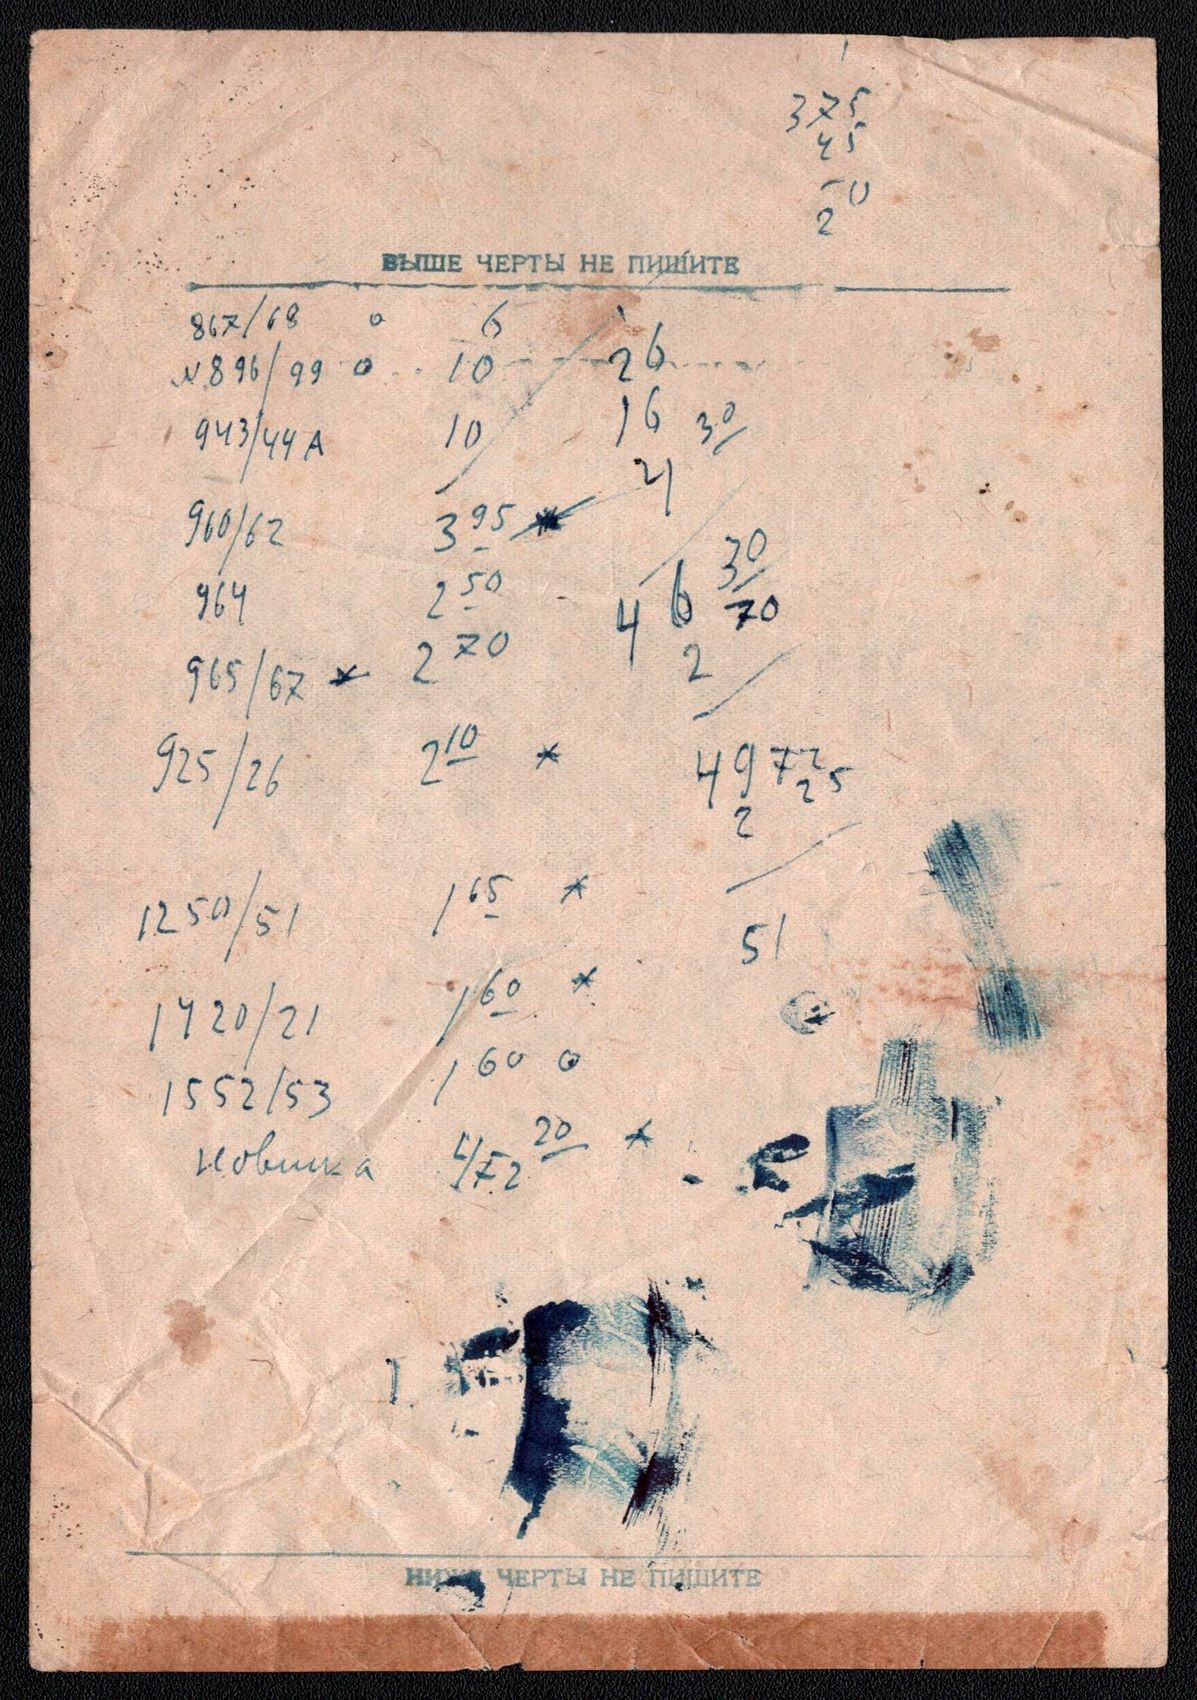 375
45
20
ВЫШЕ ЧЕРТЫ НЕ ПИШИТЕ
867/68 o 6
N896/99 o 10 26
943/44 А 10 16 30
21
960/62 3 95 *
964 2 50 46 30
965/67 * 2 70 2 70
925/26 2 10 * 49 72
2 25
1250/51 1 65 * 51
1420/21 1 60 *
1552/53 1 60 o
новинка 20 *
НИЖЕ ЧЕРТЫ НЕ ПИШИТЕ